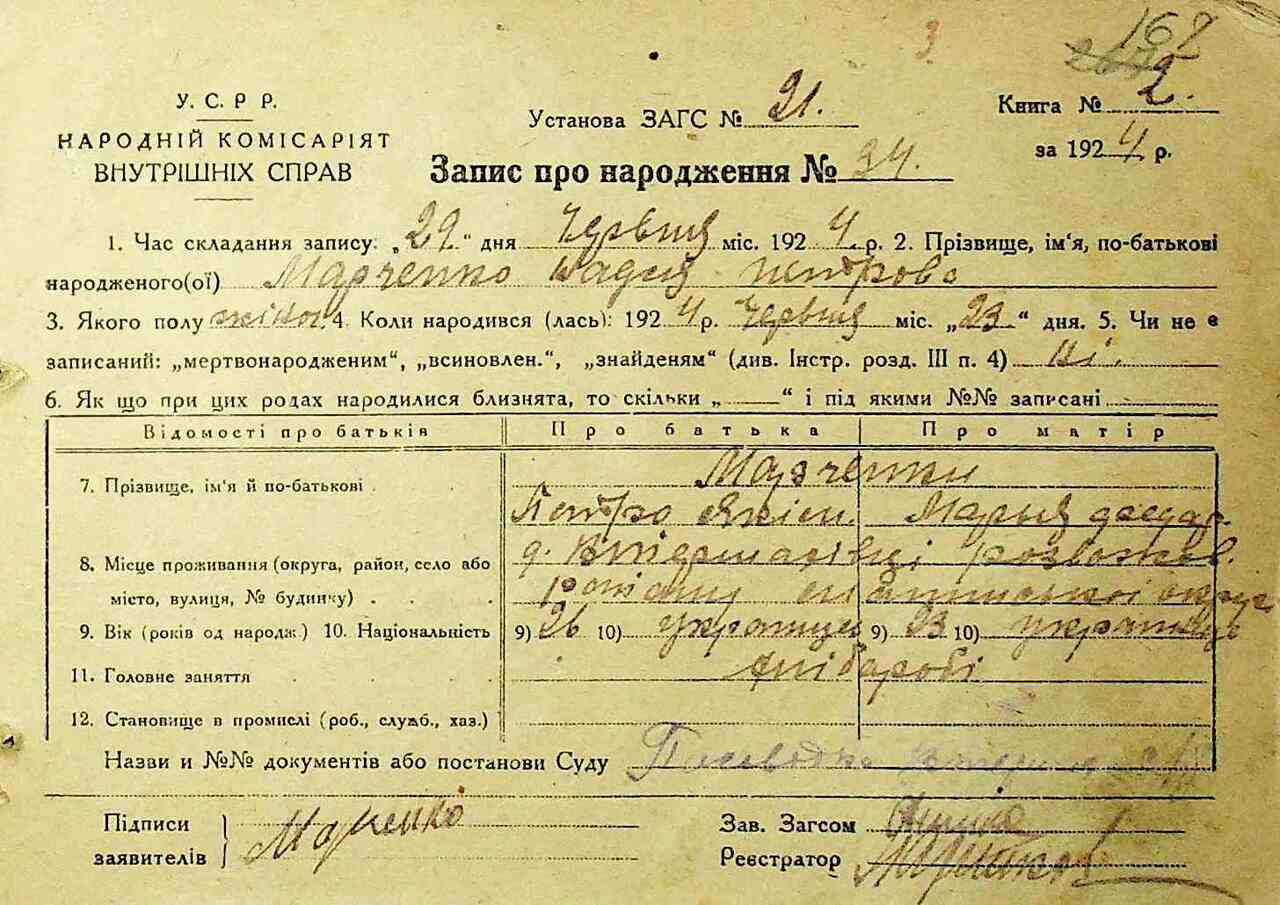 168
3
У. С. Р Р.
НАРОДНІЙ КОМІСАРІЯТ
ВНУТРІШНІХ СПРАВ
Установа ЗАГС № 21.
Книга № 2.
за 1924 р.
Запис про народження № 34.
1. Час складання запису: „29.“ дня Червня міс. 1924 р. 2. Прізвище, ім‘я, по-батькові
народженого(ої) Марченко Надея петрова
3. Якого полу жіноч. 4. Коли народився (лась): 1924 р. Червня міс. „23“ дня. 5. Чи не є
записаний: „мертвонародженим“, „всиновлен.“, „знайденям“ (див. Інстр. розд. III п. 4) ні.
6. Як що при цих родах народилися близнята, то скільки „ “ і під якими №№ записані
Відомості про батьків Про батька Про матір
7. Прізвище, ім‘я й по-батькові Марченки
Петро Марья
8. Місце проживання (округа, район, село або
місто, вулиця, № будинку)
9. Вік (років од народж.) 10. Національність 9) 26 10) украинец 9) 23 10) украинка
11. Головне заняття хлібаробі
12. Становище в промислі (роб., служб., хаз.)
Назви и №№ документів або постанови Суду
Підписи
заявителів
Зав. Загсом
Реєстратор